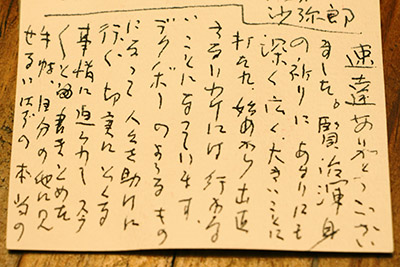 沙弥郎
速達ありがとうござい
ました。賢治渾身
の祈りに あまりにも
深く広く大きいことに
打たれ、始めから出直
さないわけには行かな
いことになっています。
デクノボーのような もの
になって 人々を助けに
行く切実
事情に迫られて
書きとめた
手帖、自分の他に見
はずの本当の